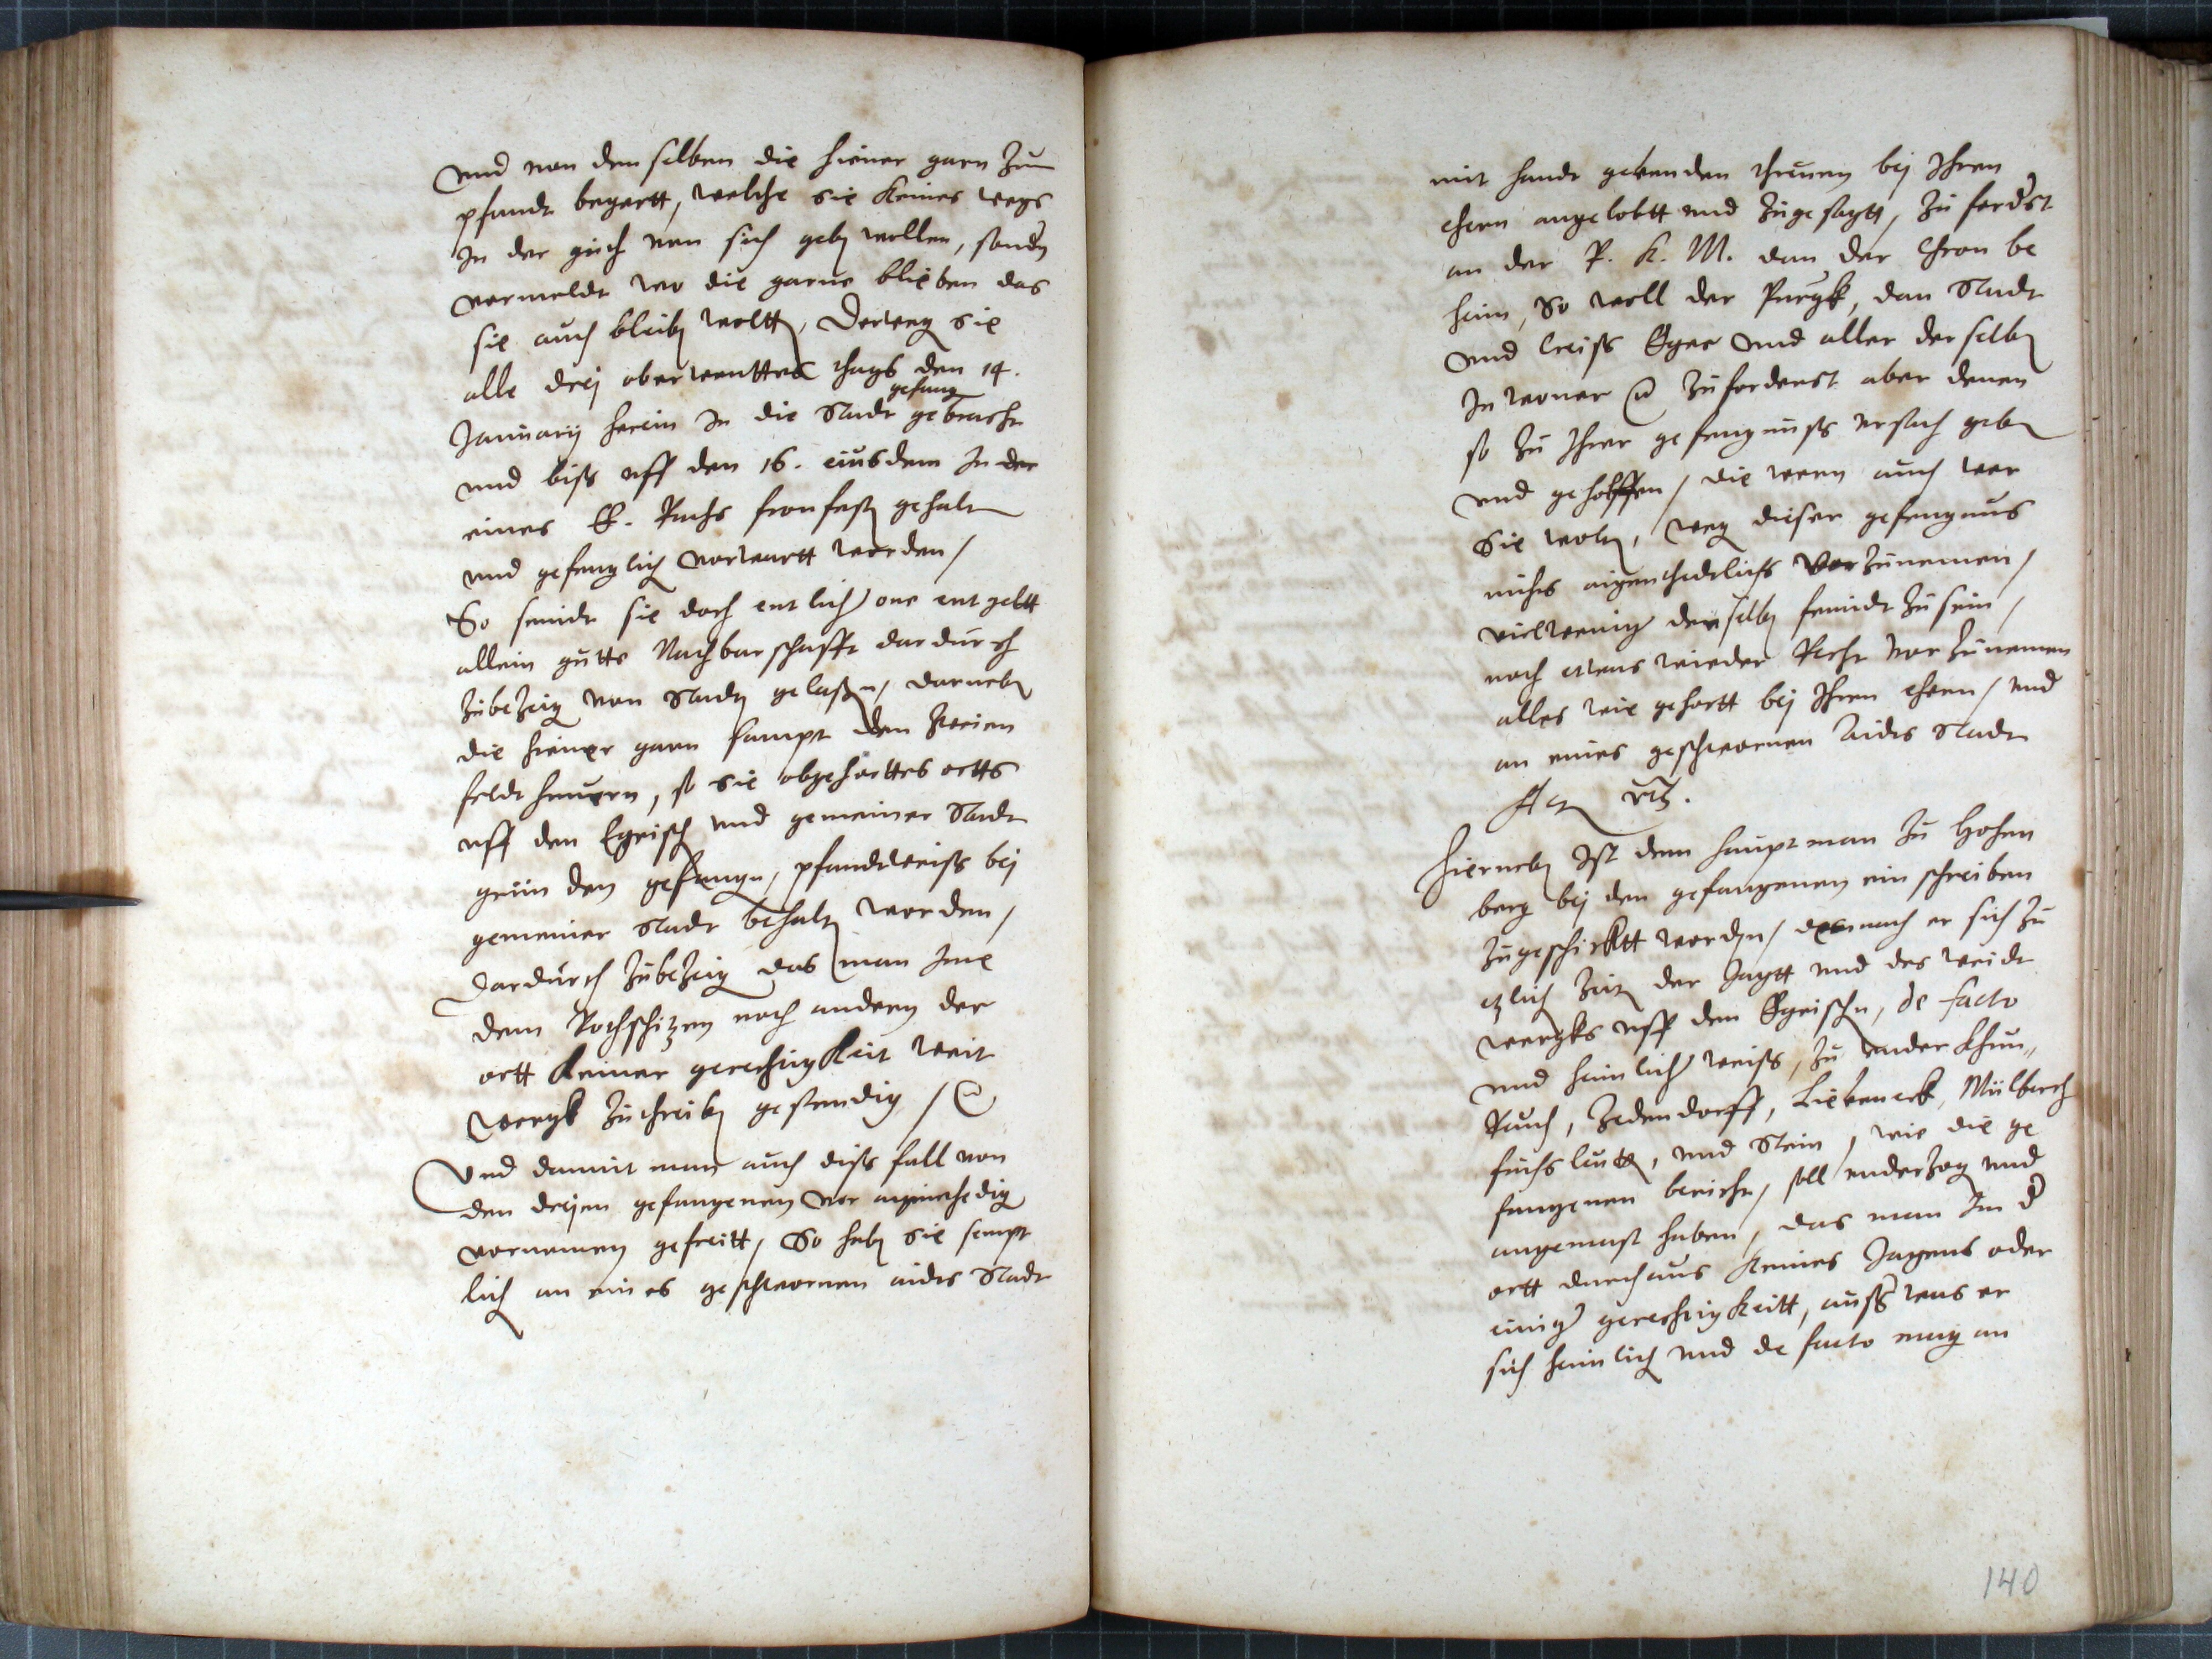 vnd von denselben die hiener garn zum
pfandt begertt, welche sie keines wegs
In der guth von sich geben wollen, sondern
vermeldt wo die garne blieben das
sie auch bleiben woltten, derweg sie
alle drej oberwenttes thags den 14.
Januarij herein In die Stadt gefang gebracht
vnd biss vff den 16. eiusdem In der
eines E. Raths fronfest gehalten
vnd gefenglich vorwartt worden /
So seindt sie doch entlich one entgeltt
allein gutte Nachbarschafft dardurch
zubezeig von Stadten gelassen, darneben
die hiener garn sampt den zweien
feldt huenern, so sie obgehorttes ortts
vff den Egrisch vnd gemeiner Stadt
grün den gefangen, pfandtweiss bej
gemeiner Stadt behalten worden /
Dardurch zubezeig das man Ime
dem Rothschitzen noch andern der
ortt keiner gerechtigkeit weit
wergk zutreiben gestendig /
Vnd damit man auch diss fall von
den dreyen gefangenen vor
vornemen gefreitt, So haben sie sempt
lich an eines geschwornen aides Stadt
mit handt gebenden threuen bej Ihren
ehern angelobtt vnd zugesagtt, zu forderst
an der R. K. M. dan der Chron be
heim, So woll der Purgk, dan Stadt
vnd Creiss Eger vnd aller derselben
Inwoner zuforderst aber denen
so zu Ihrer gefengnuss vrsach geben
vnd geholffen / die wern auch wer
Sie wolen, weg dieser gefengnus
nichts vorzunemen /
vielweniger derselben feindt zu sein /
noch etwas wieder Recht vorzunemen
alles wie gehortt bej Ihren ehren / vnd
an eines geschwornen Aides Stadt
Act vts.
Hierneben Ist dem hauptman zu Hohen
berg bej den gefangenen ein schreiben
zugeschicktt worden / demnach er sich zu
etzlich zeiten der Jagtt vnd des weidt
wergks vff dem Egrischen, de facto
vnd heimlich weiss, zu vnder Khun„
Reuth, Zedendorff, Liebeneck, Mülbach
fuchs leutten, vnd Stein, wie die ge
fangenen bericht, soll vnderzog vnd
angemast haben, das man Im der
ortt durchaus keines Jagens oder
einiger gerechtigkeitt, ausser was er
sich heimlich vnd de facto mag an
140